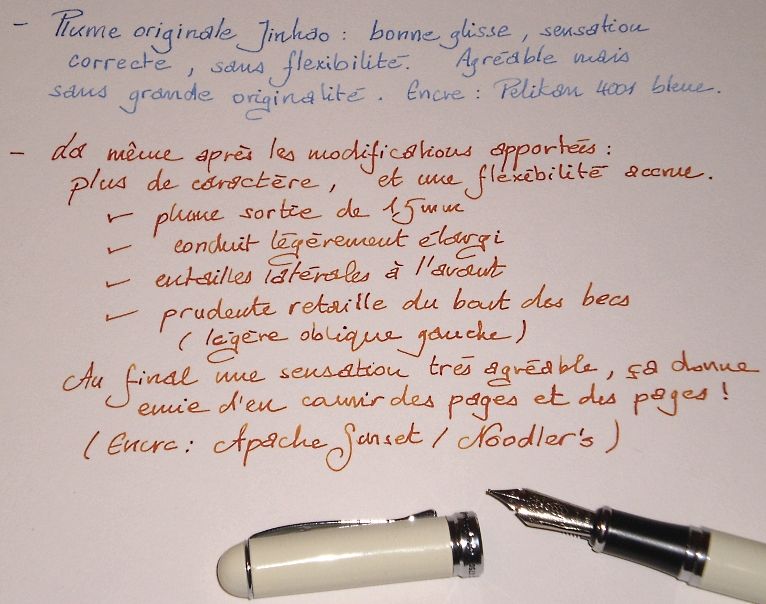 - Plume originale Jinhao : bonne glisse, sensation
correcte, sans flexibilité. Agréable mais
sans grande originalité. Encre : Pelikan 4001 bleue.
- La même après les modifications apportées :
plus de caractère, et une flexibilité accrue.
✓ plume sortie de 1,5mm
✓ conduit légèrement élargi
✓ entailles latérales à l'avant
✓ prudente retaille du bout des becs
(légère oblique gauche)
Au final une sensation très agréable, ça donne
envie d'en couvrir des pages et des pages !
(Encre : Apache Sunset / Noodler's)